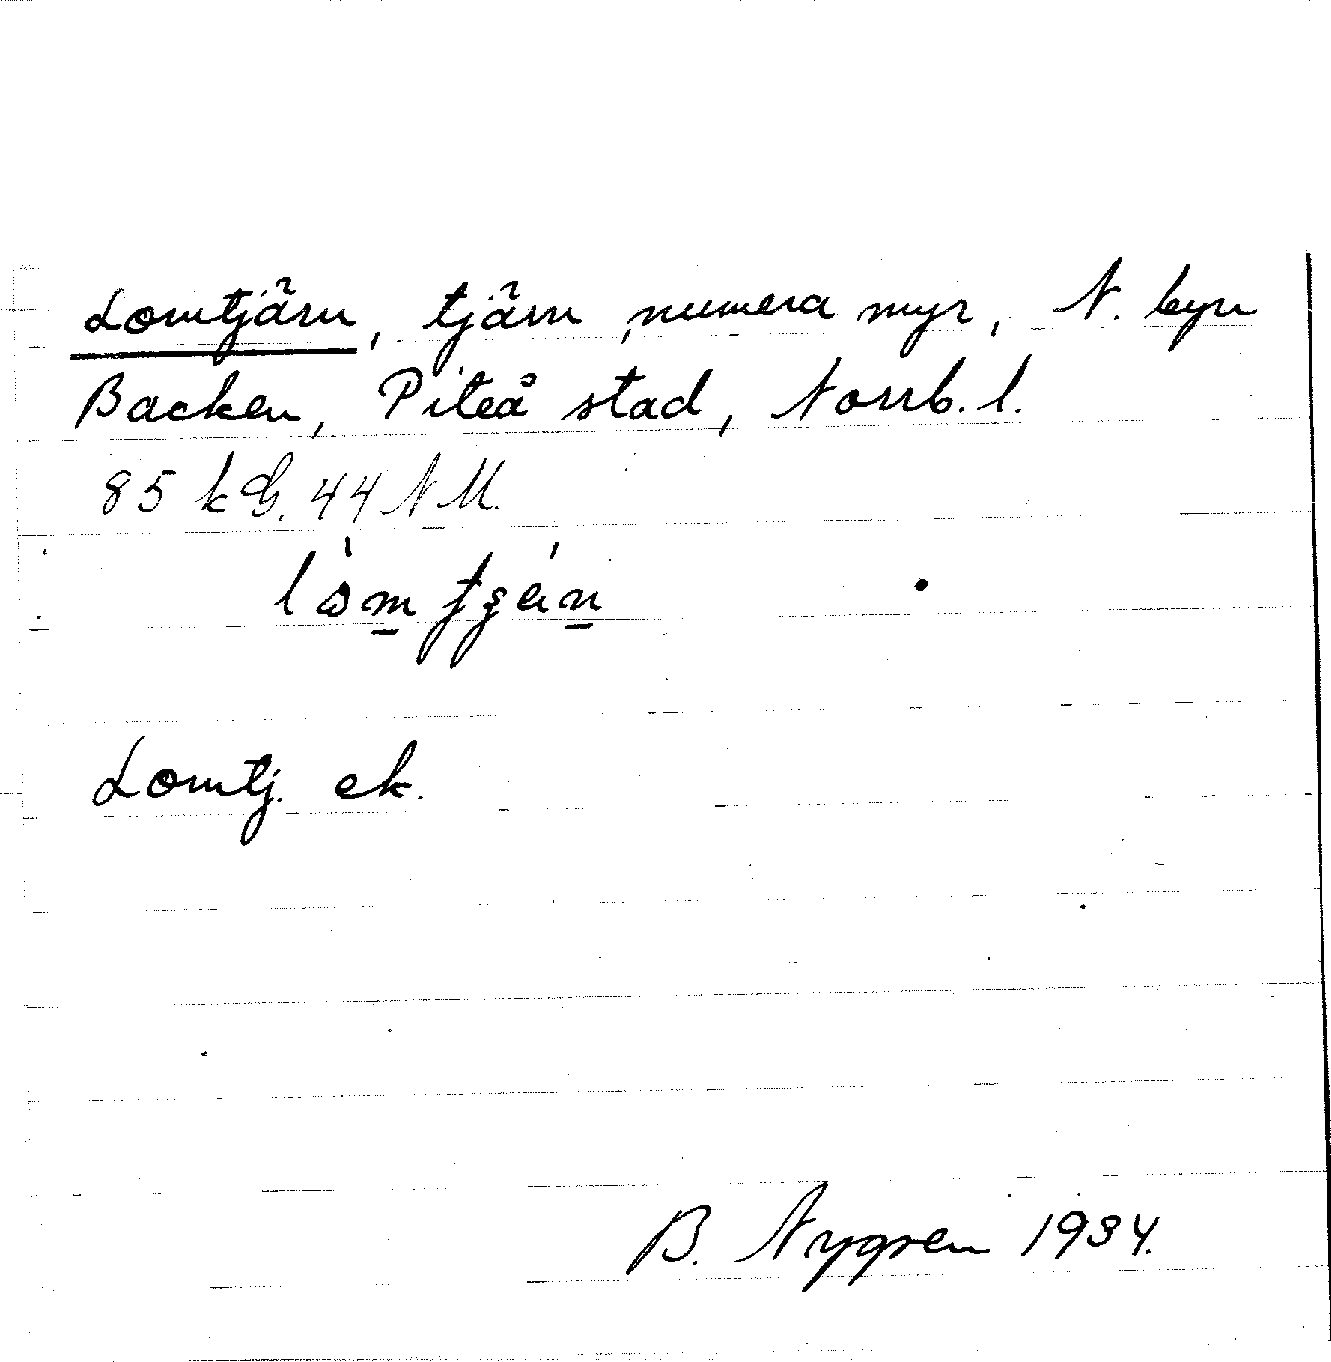 Lomtjärn, tjärn, numera myr, N. byn
Backen, Piteå stad, Norrb. l.
85 kG. 44 N M.
Lomtj. ek.
B. Nygren 1934.